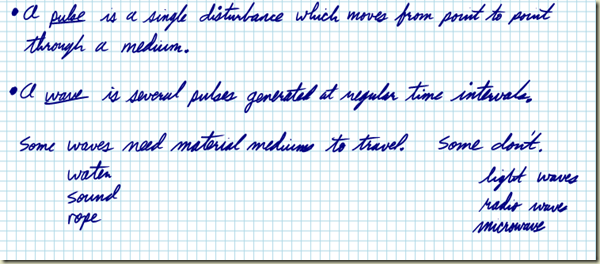 • A pulse is a single disturbance which moves from point to point
through a medium.
• A wave is several pulses generated at regular time intervals.
Some waves need material mediums to travel. Some don't.
water light waves
sound radio waves
rope microwave